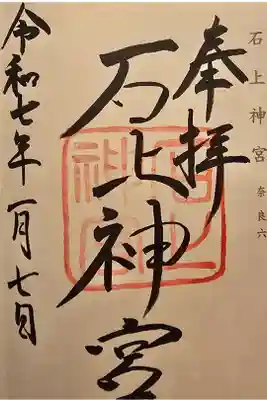 石上神宮 奈良六
奉拝
石上神宮
令和七年一月七日